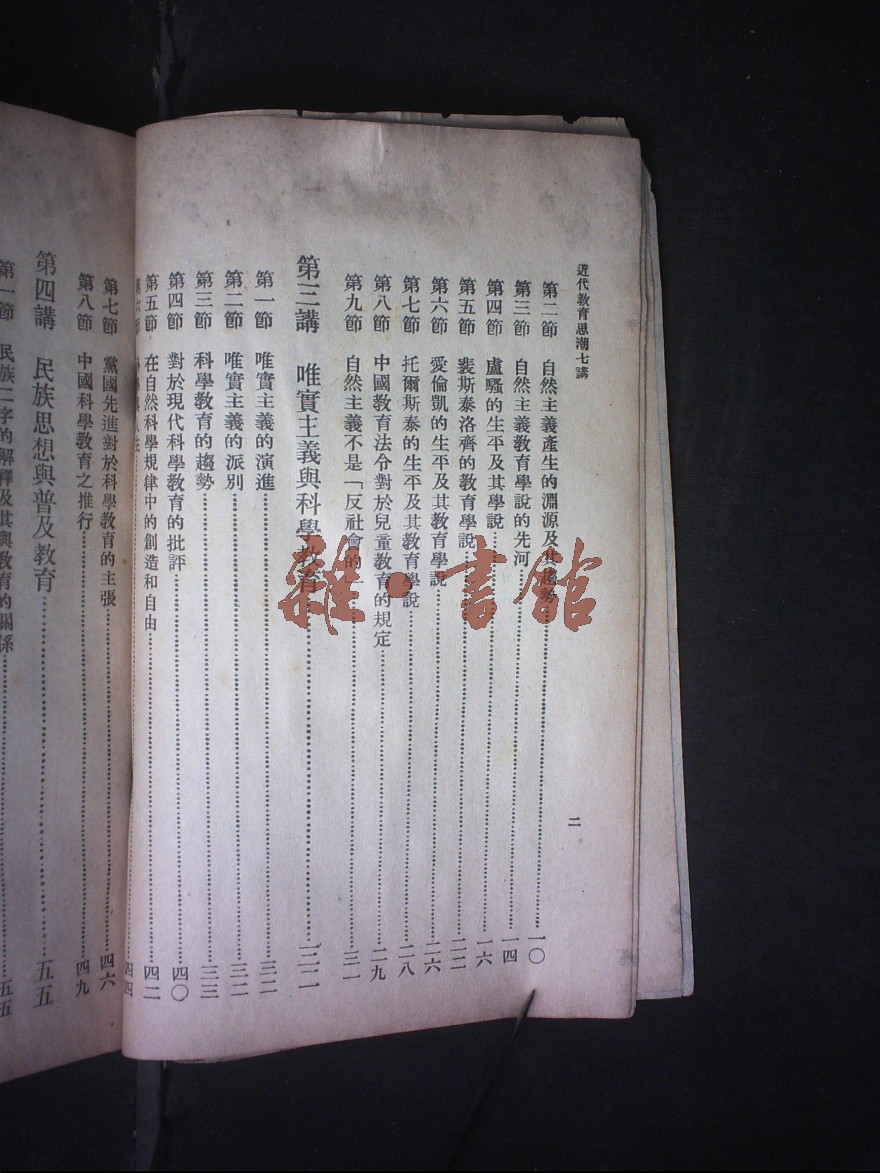 近代教育思潮七講
二
第二節 自然主義產生的淵源及其趨勢 一〇
第三節 自然主義教育學說的先河 一四
第四節 盧騷的生平及其學說 一六
第五節 裴斯泰洛齊的教育學說 二二
第六節 愛倫凱的生平及其教育學說 二六
第七節 托爾斯泰的生平及其教育學說 二八
第八節 中國教育法令對於兒童教育的規定 二九
第九節 自然主義不是「反社會的 三一
第三講 唯實主義與科學教育 三二
第一節 唯實主義的演進 三二
第二節 唯實主義的派別 三二
第三節 科學教育的趨勢 三三
第四節 對於現代科學教育的批評 四〇
第五節 在自然科學規律中的創造和自由 四二
四四
第七節 黨國先進對於科學教育的主張 四六
第八節 中國科學教育之推行 四九
第四講 民族思想與普及教育 五五
第一節 民族二字的解釋及其與教育的關係 五五
雜·書館